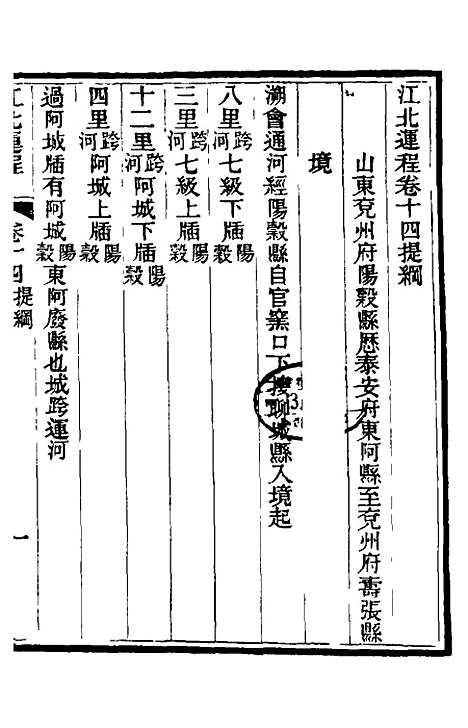 江北運程卷十四提綱
山東兗州府陽穀縣歷泰安府東阿縣至兗州府壽張縣
境
溯會通河經陽穀縣自官窯口下接聊城縣入境起
八里跨河七級下牐陽穀
三里跨河七級上牐陽穀
十二里跨河阿城下牐陽穀
四里跨河阿城上牐陽穀
過阿城牐有阿城陽穀東阿廢縣也城跨運河
江北運程 卷十四提綱 一